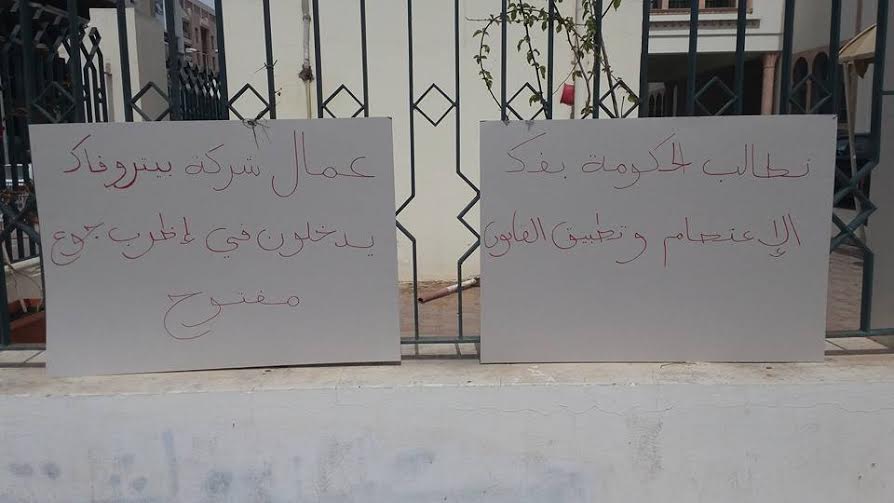 نطالب الحكومة بفك
الإعتصام وتطبيق القانون
عمال شركة بيتروفاك
يدخلون في إظرب جوع
مفتوح